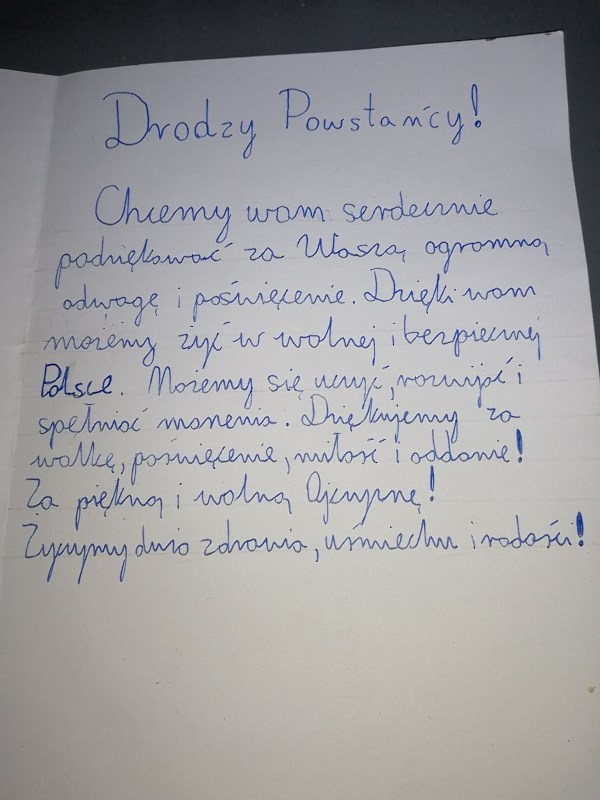 Drodzy Powstańcy!
Chcemy wam serdecznie
podziękować za Waszą ogromną
odwagę i poświęcenie. Dzięki wam
możemy żyć w wolnej i bezpiecznej
Polsce. Możemy się uczyć, rozwijać i
spełniać marzenia. Dziękujemy za
walkę, poświęcenie, miłość i oddanie!
Za piękną i wolną Ojczyznę!
Życzymy dużo zdrowia, uśmiechu i radości!